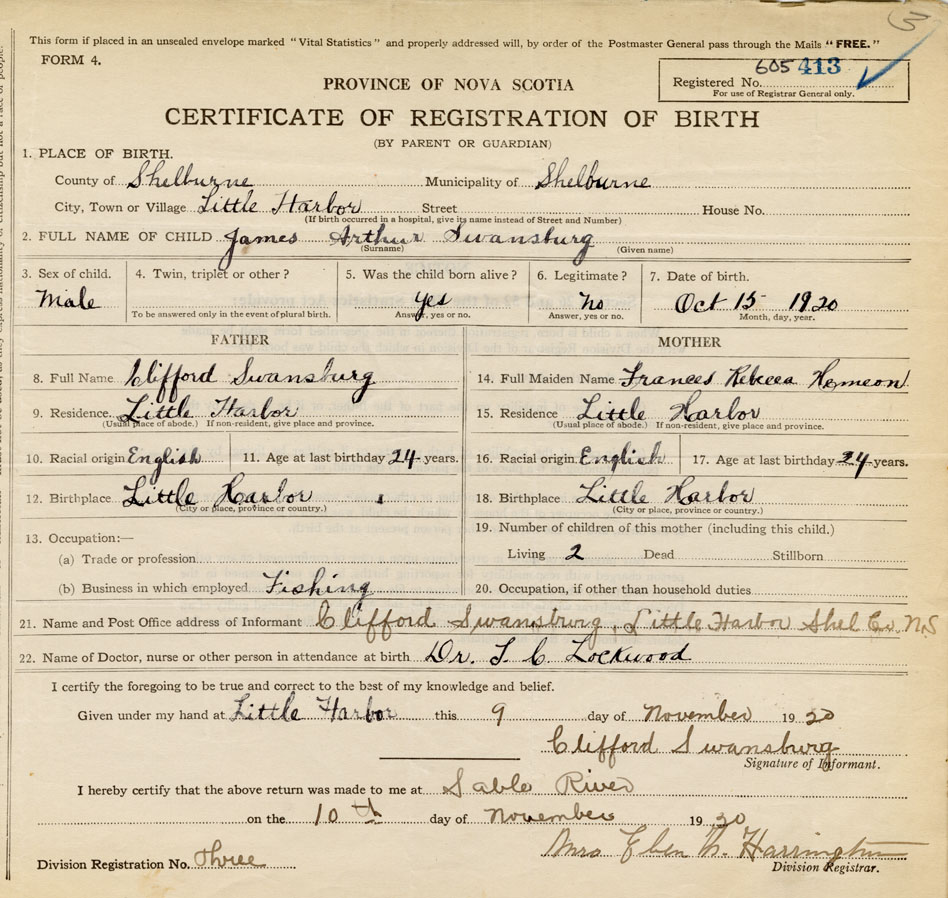 This form if placed in an unsealed envelope marked "Vital Statistics" and properly addressed will, by order of the Postmaster General pass through the Mails "FREE."
FORM 4.
605 413
Registered No.
For use of Registrar General only.
PROVINCE OF NOVA SCOTIA
CERTIFICATE OF REGISTRATION OF BIRTH
(BY PARENT OR GUARDIAN)
1. PLACE OF BIRTH.
County of Shelburne Municipality of Shelburne
City, Town or Village Little Harbor Street House No.
(If birth occurred in a hospital, give its name instead of Street and Number)
2. FULL NAME OF CHILD James Arthur Swansburg
(Surname) (Given name)
3. Sex of child. 4. Twin, triplet or other? 5. Was the child born alive? 6. Legitimate? 7. Date of birth.
Male yes no Oct 15 1920
To be answered only in the event of plural birth. Answer, yes or no. Answer, yes or no. Month, day, year.
FATHER MOTHER
8. Full Name Clifford Swansburg 14. Full Maiden Name Frances Rebecca Hemeon
9. Residence Little Harbor 15. Residence Little Harbor
(Usual place of abode.) If non-resident, give place and province. (Usual place of abode.) If non-resident, give place and province.
10. Racial origin English 11. Age at last birthday 24 years. 16. Racial origin English 17. Age at last birthday 24 years.
12. Birthplace Little Harbor 18. Birthplace Little Harbor
(City or place, province or country.) (City or place, province or country.)
13. Occupation:— 19. Number of children of this mother (including this child.)
(a) Trade or profession Living 2 Dead Stillborn
(b) Business in which employed Fishing 20. Occupation, if other than household duties
21. Name and Post Office address of Informant Clifford Swansburg, Little Harbor Shel Co. N.S
22. Name of Doctor, nurse or other person in attendance at birth Dr. L C Lockwood
I certify the foregoing to be true and correct to the best of my knowledge and belief.
Given under my hand at Little Harbor this 9 day of November 1920
Clifford Swansburg
Signature of Informant.
I hereby certify that the above return was made to me at Sable River
on the 10 th day of November 1920
Mrs Eben Harrington
Division Registration No. three Division Registrar.